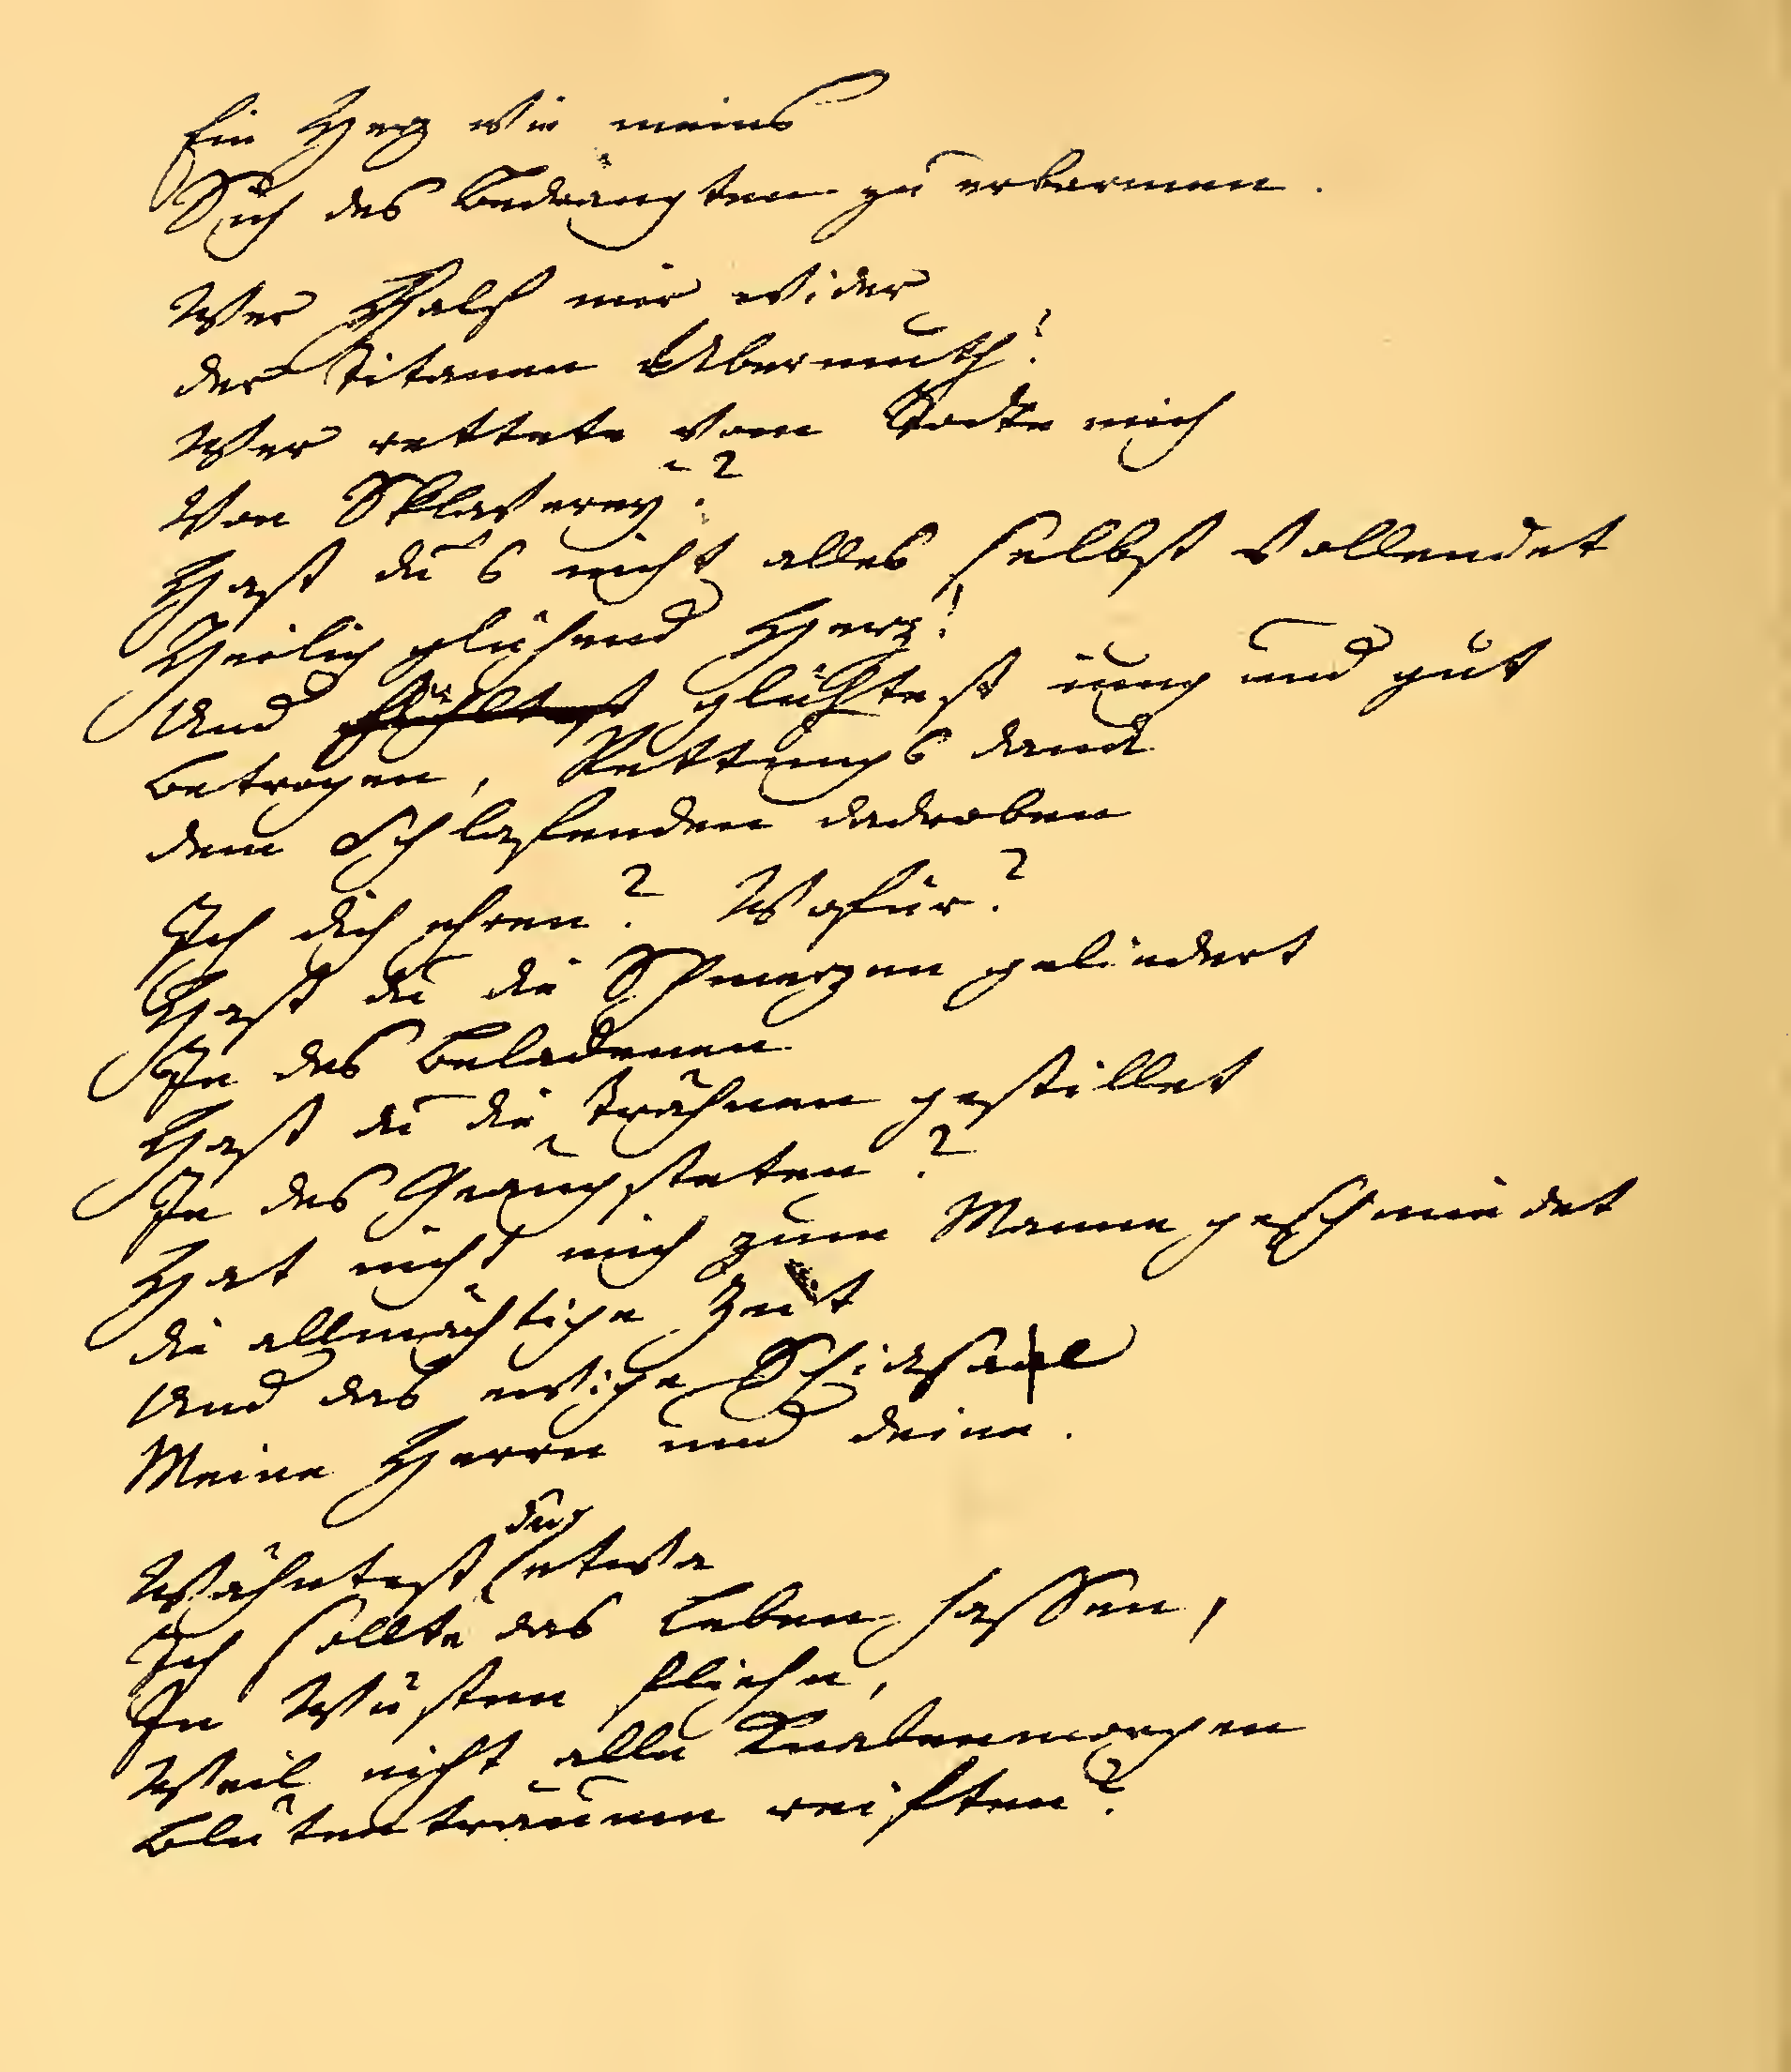 Ein Herz wie meins
Sich des Bedrängten zu erbarmen.
Wer half mir wider
der Titanen Übermuth?
Wer rettete vom Todte mich
Von Sklaverey?
Hast du's nicht alles selbst vollendet
Heilig glühend Herz?
Und fühltest glühtest iung und gut
Betrogen, Rettungsdanck
dem Schlafenden dadroben
Ich dich ehren? Wofür?
Hast du die Schmerzen gelindert
Je des Beladenen
Hast du die Trähnen gestillet
Je des Geängsteten?
Hat nicht mich zum Manne geschmiedet
die allmächtige Zeit
Und das ewige Schicksaal
Meine Herrn und deine.
du
Wähntest etwa
Ich sollte das Leben hassen,
In Wüsten fliehn,
Weil nicht alle Knabenmorgen
Blütenträume reiften?